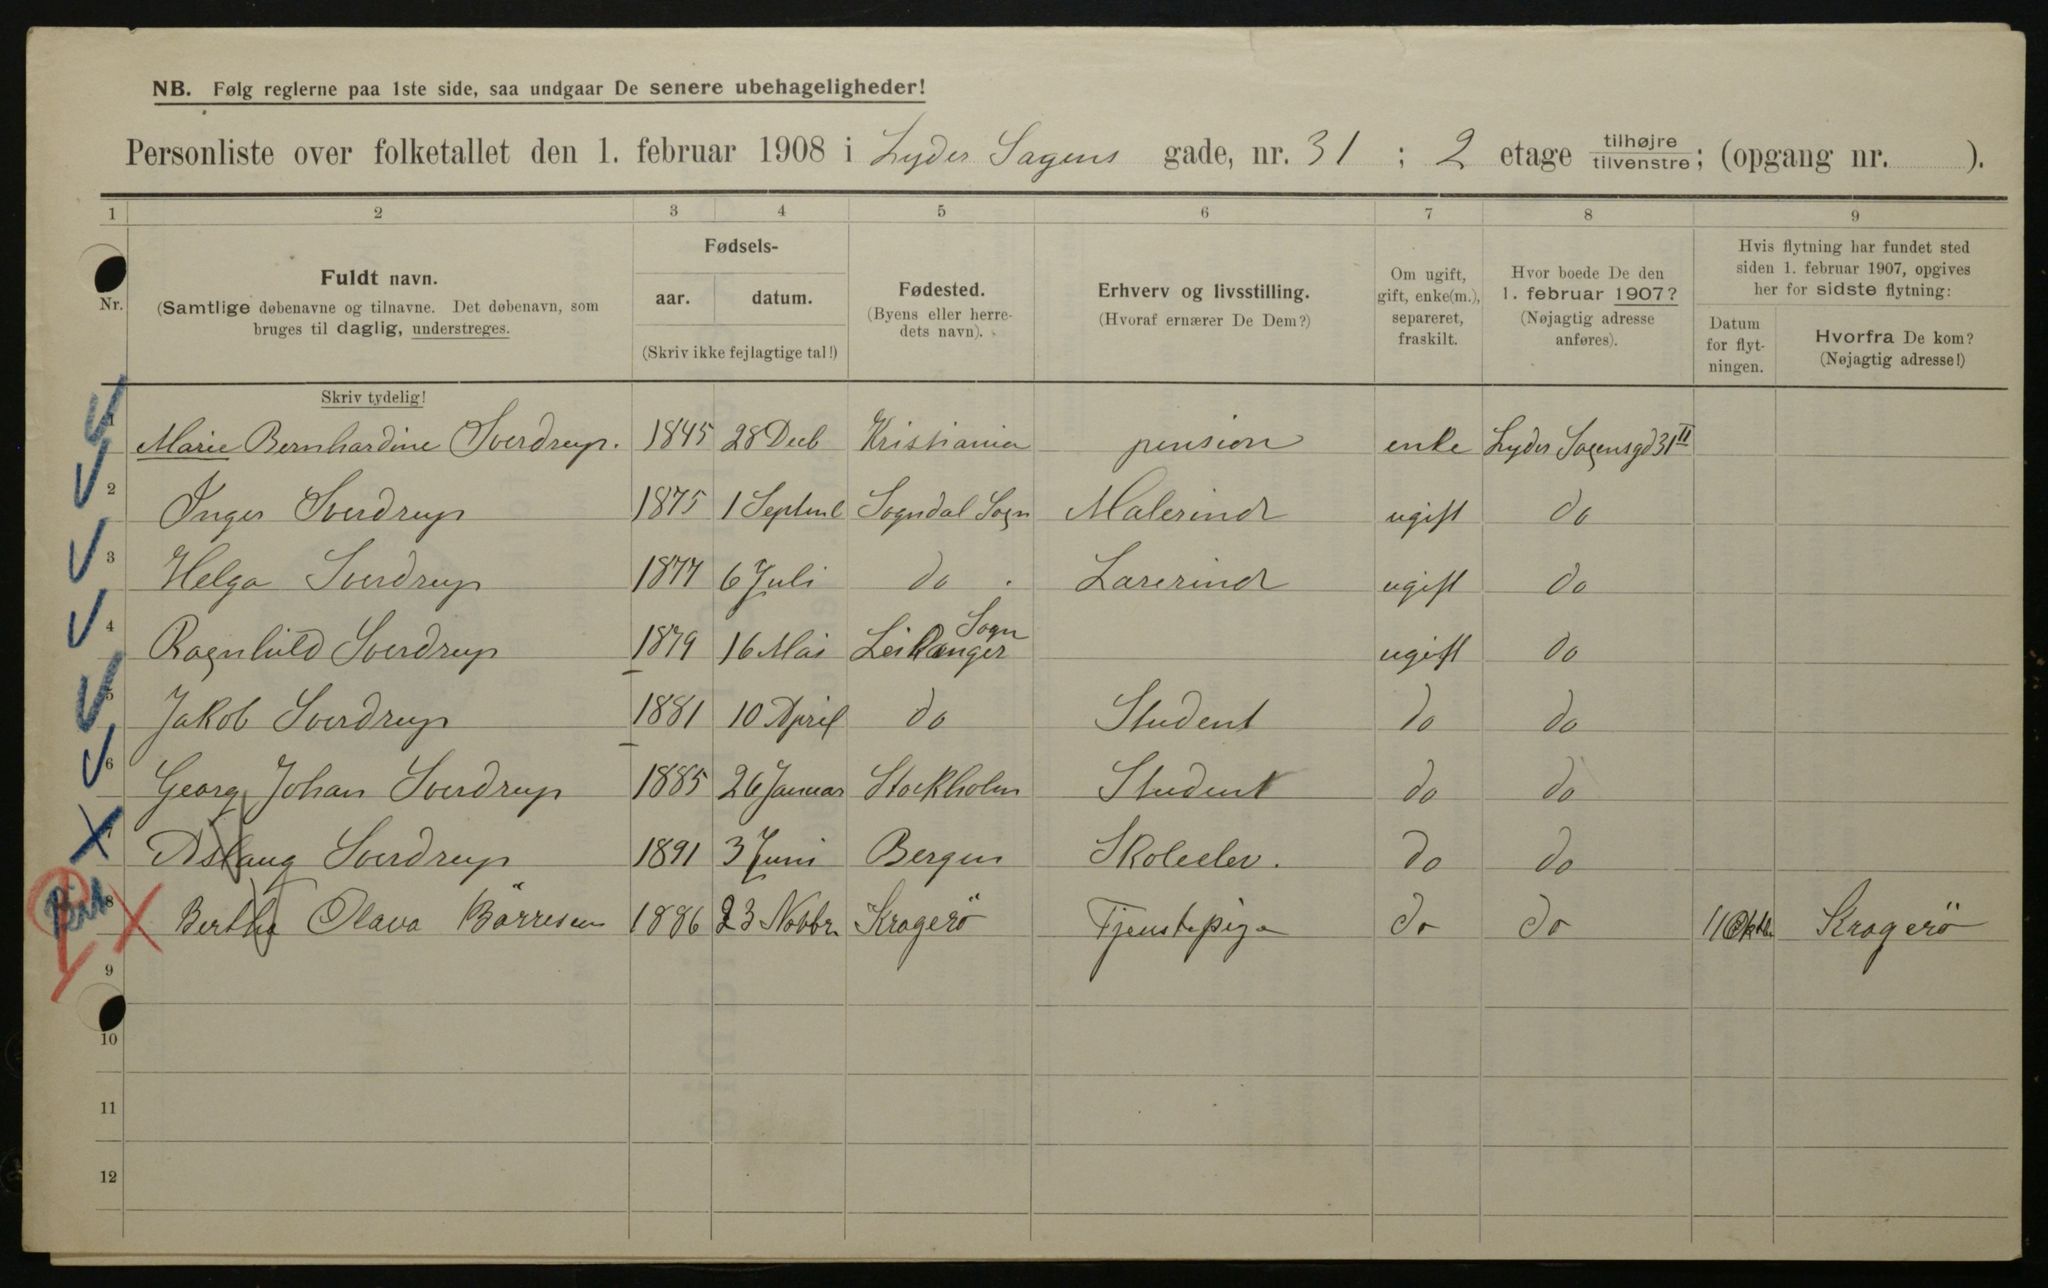 NB. Følg reglerne paa 1ste side, saa undgaar De senere ubehageligheder!
Personliste over folketallet den 1. februar 1908 i Lyder Sagens gade, nr. 31 ; 2 etage tilhøjre tilvenstre; (opgang nr. ).
1 2 3 4 5 6 7 8 9
Nr.
Fuldt navn.
(Samtlige døbenavne og tilnavne. Det døbenavn, som
bruges til daglig, understreges.
Skriv tydelig!
Fødsels-
aar. datum.
(Skriv ikke fejlagtige tal!)
Fødested.
(Byens eller herre-
dets navn).
Erhverv og livsstilling.
(Hvoraf ernærer De Dem?)
Om ugift,
gift, enke(m.),
separeret,
fraskilt.
Hvor boede De den
1. februar 1907?
(Nøjagtig adresse
anføres).
Hvis flytning har fundet sted
siden 1. februar 1907, opgives
her for sidste flytning:
Datum
for flyt-
ningen.
Hvorfra De kom?
(Nøjagtig adresse!)
1 Marie Bernhardine Sverdrup. 1845 28 Decb Kristiania pension enke Lyder Sagensgd 31 II
2 Inger Sverdrup 1875 1 Septemb Sogndal Sogn Malerinde ugift do
3 Helga Sverdrup 1877 6 Juli do . Lærerinde ugift do
4 Ragnhild Sverdrup 1879 16 Mai Leikanger Sogn ugift do
5 Jakob Sverdrup 1881 10 April do Student do do
6 Georg Johan Sverdrup 1885 26 Januar Stockholm Student do do
7 Aslaug Sverdrup 1891 3 Juni Bergen Skoleelev. do do
8 Bertha Olava Börresen 1886 23 Novbr Kragerö Tjenstepige do do 11 Oktbr Kragerö
9
10
11
12